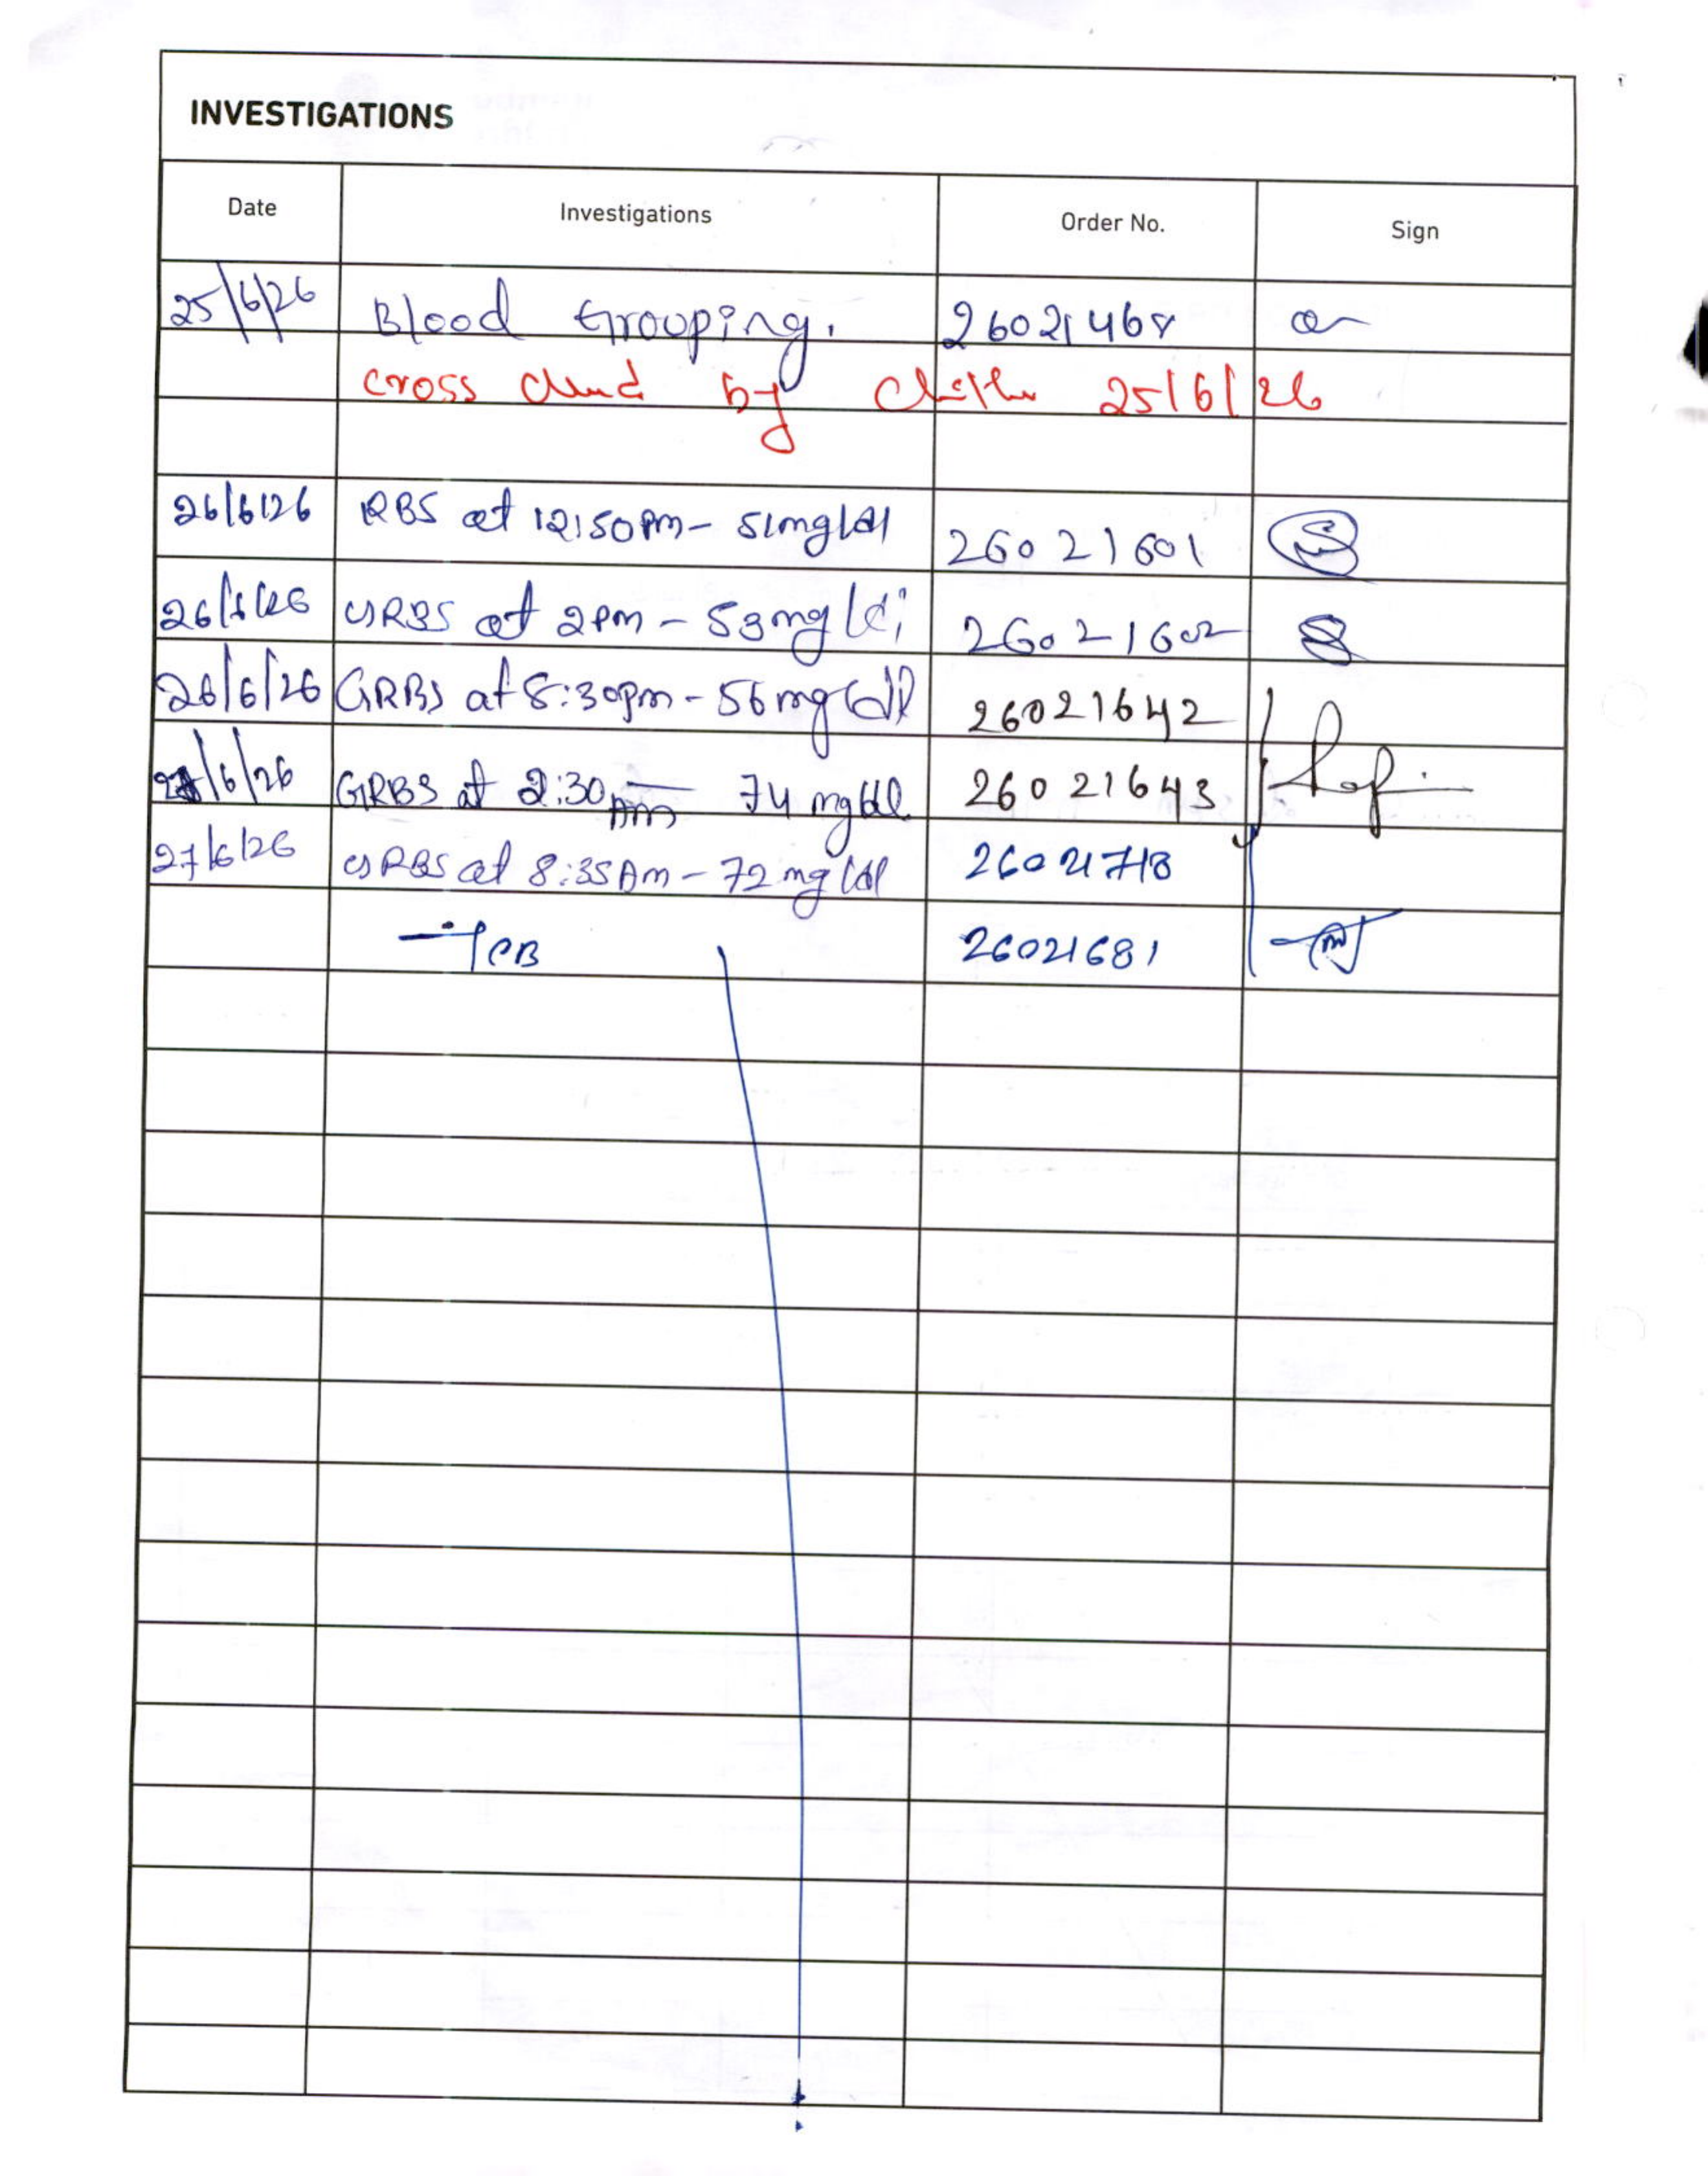 INVESTIGATIONS
Date Investigations Order No. Sign
25/6/26 Blood Grouping. 26021468
cross by 25/6/26
26/6/26 RBS at 12:50pm - 51mg/dl 26021601
26/6/26 GRBS at 2pm - 53mg/dl 26021602
26/6/26 GRBS at 8:30pm - 56mg/dl 26021642
27/6/26 GRBS at 2:30am 74 mg/dl 26021643
27/6/26 GRBS at 8:35Am - 72mg/dl 26021718
TCB 26021681